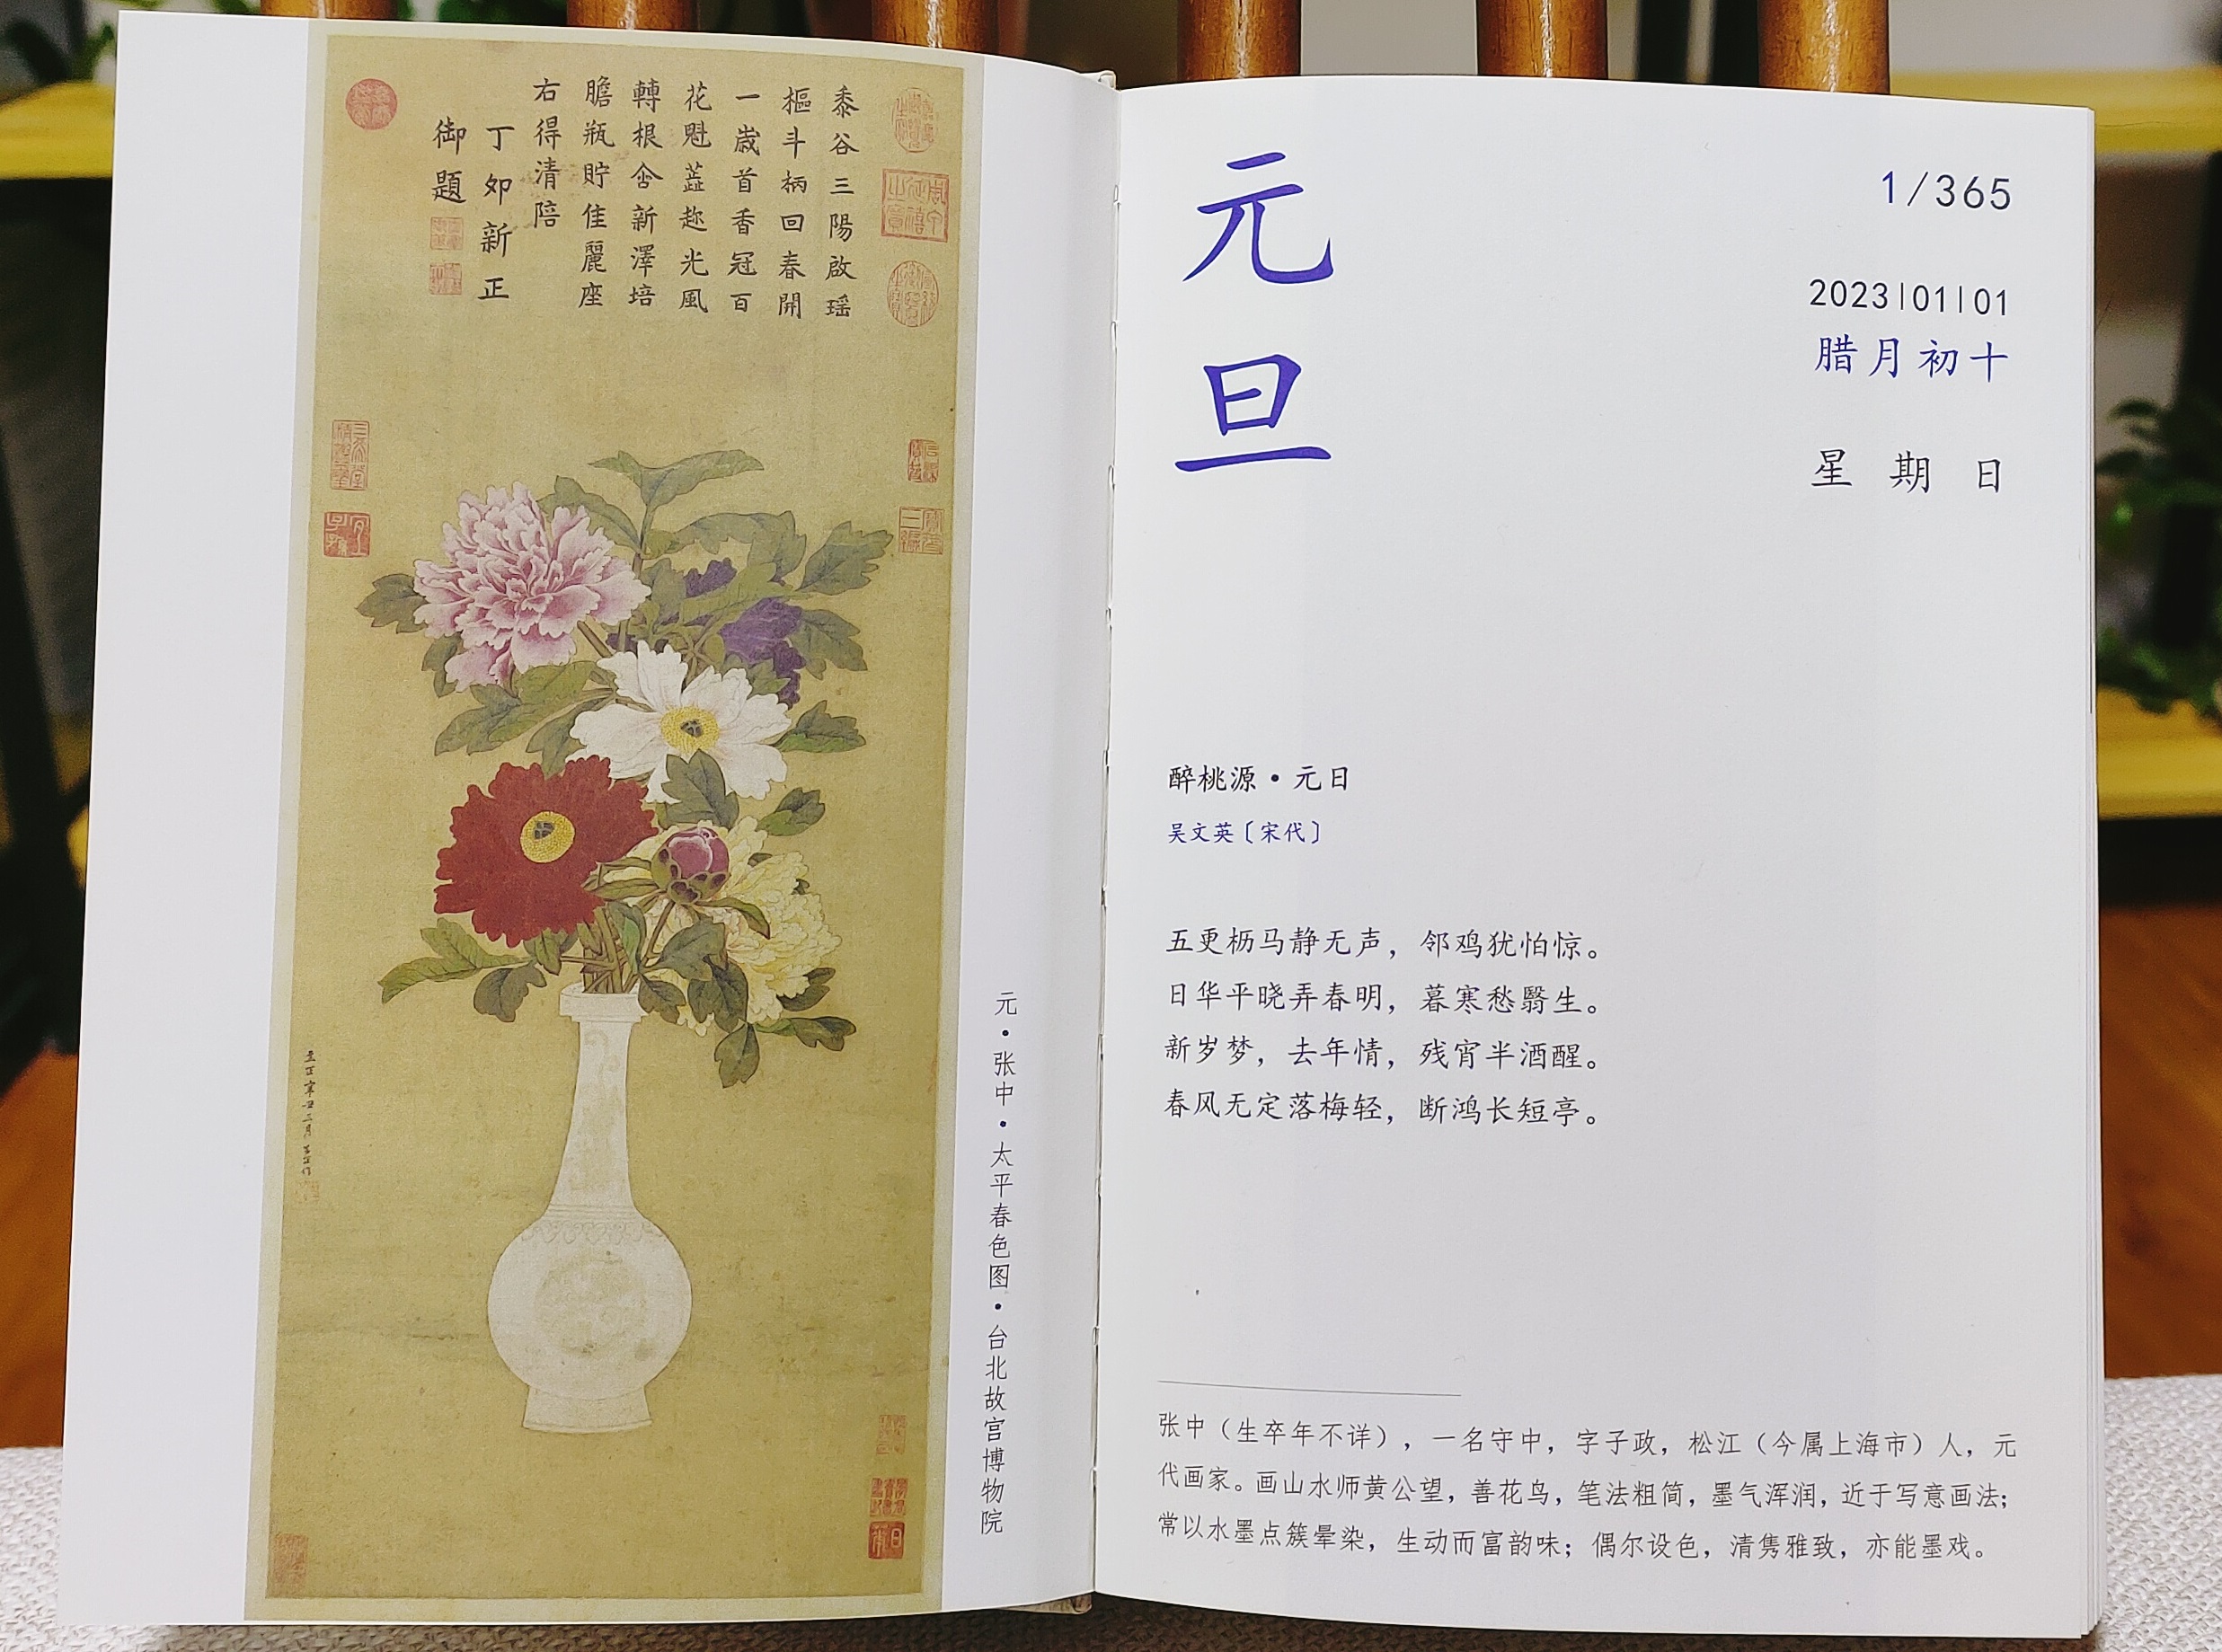 黍谷三陽啟瑶
樞斗柄回春開
一歲首香冠百
花魁蕋趂光風
轉根含新澤培
膽瓶貯佳麗座
右得清陪
丁夘新正
御題
元·张中·太平春色图·台北故宫博物院
元旦
1/365
2023|01|01
腊月初十
星期日
醉桃源·元日
吴文英〔宋代〕
五更枥马静无声，邻鸡犹怕惊。
日华平晓弄春明，暮寒愁翳生。
新岁梦，去年情，残宵半酒醒。
春风无定落梅轻，断鸿长短亭。
张中（生卒年不详），一名守中，字子政，松江（今属上海市）人，元
代画家。画山水师黄公望，善花鸟，笔法粗简，墨气浑润，近于写意画法；
常以水墨点簇晕染，生动而富韵味；偶尔设色，清隽雅致，亦能墨戏。